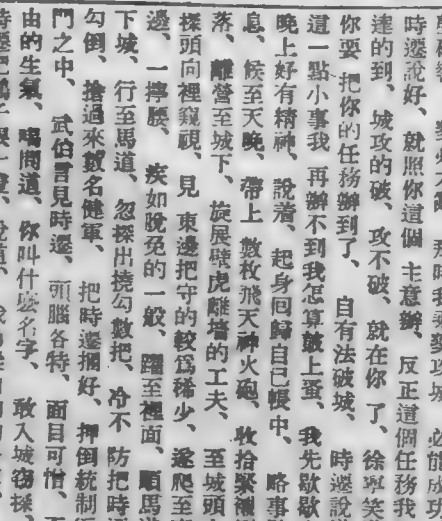 時遷說好、就照你這個主意辦、反正這個任務我
達的到、城攻的破、攻不破、就在你了、徐寧笑
你要把你的任務辦到了、自有法破城、時遷說
這一點小事我再辦不到我怎算鼓上蚤、我先歇歇
晚上好有精神、說着、起身回歸自己帳中、略事
息、候至天晚、帶上數枚飛天神火砲、收拾緊襯
落、離營至城下、旋展壁虎離墙的工夫、至城頭
探頭向裡窺視、見東邊把守的較爲稀少、遂爬至
邊、一擰腰、疾如脫兔的一般、躍至裡面、順馬道
下城、行至馬道、忽探出撓勾數把、冷不防把時
勾倒、搶過來數名健軍、把時遷捆好、押倒統制
門之中、武伯言見時遷、頭腦各特、面目可怡、
由的生氣、喝問道、你叫什麼名字、敢入城窃探、